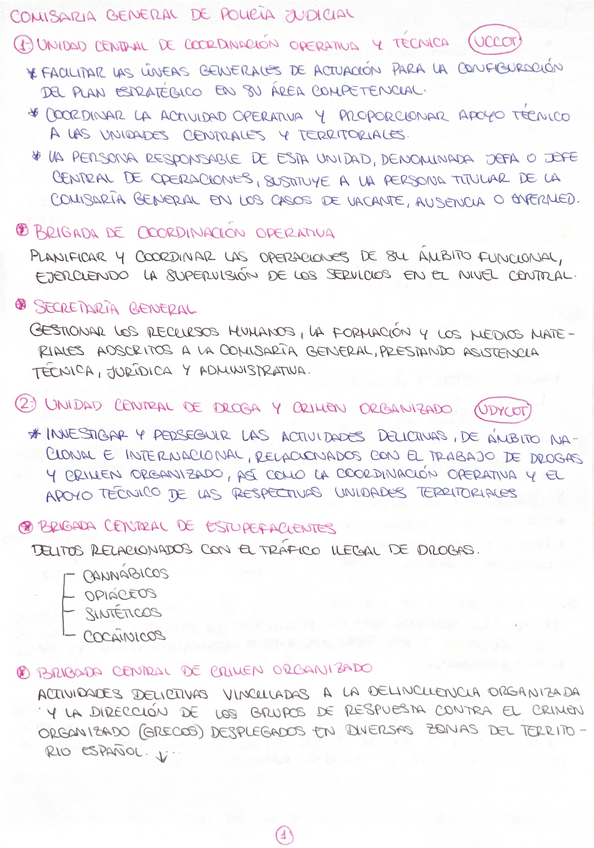 COMISARIA GENERAL DE POLICÍA JUDICIAL
1. UNIDAD CENTRAL DE COORDINACIÓN OPERATIVA Y TÉCNICA (UCCOT)
* FACILITAR LAS LÍNEAS GENERALES DE ACTUACIÓN PARA LA CONFIGURACIÓN
DEL PLAN ESTRATÉGICO EN SU ÁREA COMPETENCIAL.
* COORDINAR LA ACTIVIDAD OPERATIVA Y PROPORCIONAR APOYO TÉCNICO
A LAS UNIDADES CENTRALES Y TERRITORIALES.
* LA PERSONA RESPONSABLE DE ESTA UNIDAD, DENOMINADA JEFA O JEFE
CENTRAL DE OPERACIONES, SUSTITUYE A LA PERSONA TITULAR DE LA
COMISARÍA GENERAL EN LOS CASOS DE VACANTE, AUSENCIA O ENFERMED.
* BRIGADA DE COORDINACIÓN OPERATIVA
PLANIFICAR Y COORDINAR LAS OPERACIONES DE SU ÁMBITO FUNCIONAL,
EJERCIENDO LA SUPERVISIÓN DE LOS SERVICIOS EN EL NIVEL CENTRAL.
* SECRETARÍA GENERAL
GESTIONAR LOS RECURSOS HUMANOS, LA FORMACIÓN Y LOS MEDIOS MATE-
RIALES ADSCRITOS A LA COMISARÍA GENERAL, PRESTANDO ASISTENCIA
TÉCNICA, JURÍDICA Y ADMINISTRATIVA.
2. UNIDAD CENTRAL DE DROGA Y CRIMEN ORGANIZADO (UDYCOT)
* INVESTIGAR Y PERSEGUIR LAS ACTIVIDADES DELICTIVAS, DE ÁMBITO NA-
CIONAL E INTERNACIONAL, RELACIONADOS CON EL TRABAJO DE DROGAS
Y CRIMEN ORGANIZADO, ASÍ COMO LA COORDINACIÓN OPERATIVA Y EL
APOYO TÉCNICO DE LAS RESPECTIVAS UNIDADES TERRITORIALES
* BRIGADA CENTRAL DE ESTUPEFACIENTES
DELITOS RELACIONADOS CON EL TRÁFICO ILEGAL DE DROGAS.
CANNÁBICOS
OPIÁCEOS
SINTÉTICOS
COCAÍNICOS
* BRIGADA CENTRAL DE CRIMEN ORGANIZADO
ACTIVIDADES DELICTIVAS VINCULADAS A LA DELINCUENCIA ORGANIZADA
Y LA DIRECCIÓN DE LOS GRUPOS DE RESPUESTA CONTRA EL CRIMEN
ORGANIZADO (GRECOS) DESPLEGADOS EN DIVERSAS ZONAS DEL TERRITO-
RIO ESPAÑOL. ↓...
1